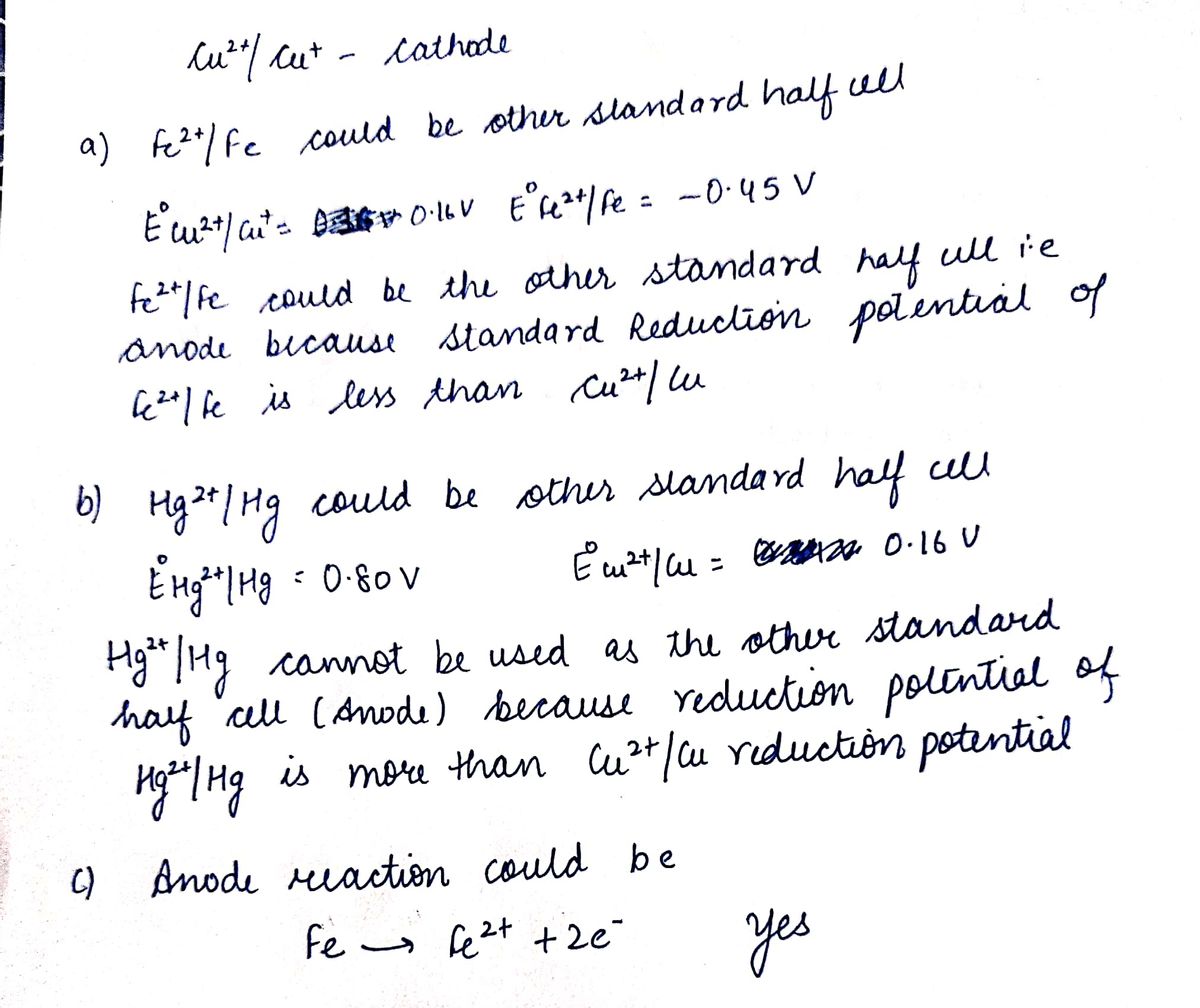 Cu²⁺/ Cu⁺ - Cathode
a) Fe²⁺/ Fe could be other standard half cell
E° Cu²⁺/ Cu⁺ = 0.16 V E° Fe²⁺/ Fe = -0.45 V
Fe²⁺/ Fe could be the other standard half cell i.e
anode because standard Reduction potential of
Fe²⁺/ Fe is less than Cu²⁺/ Cu
b) Hg²⁺/ Hg could be other standard half cell
E° Hg²⁺/ Hg = 0.80 V E° Cu²⁺/ Cu = 0.16 V
Hg²⁺/ Hg cannot be used as the other standard
half cell (Anode) because reduction potential of
Hg²⁺/ Hg is more than Cu²⁺/ Cu reduction potential
c) Anode reaction could be
Fe → Fe²⁺ + 2e⁻ Yes